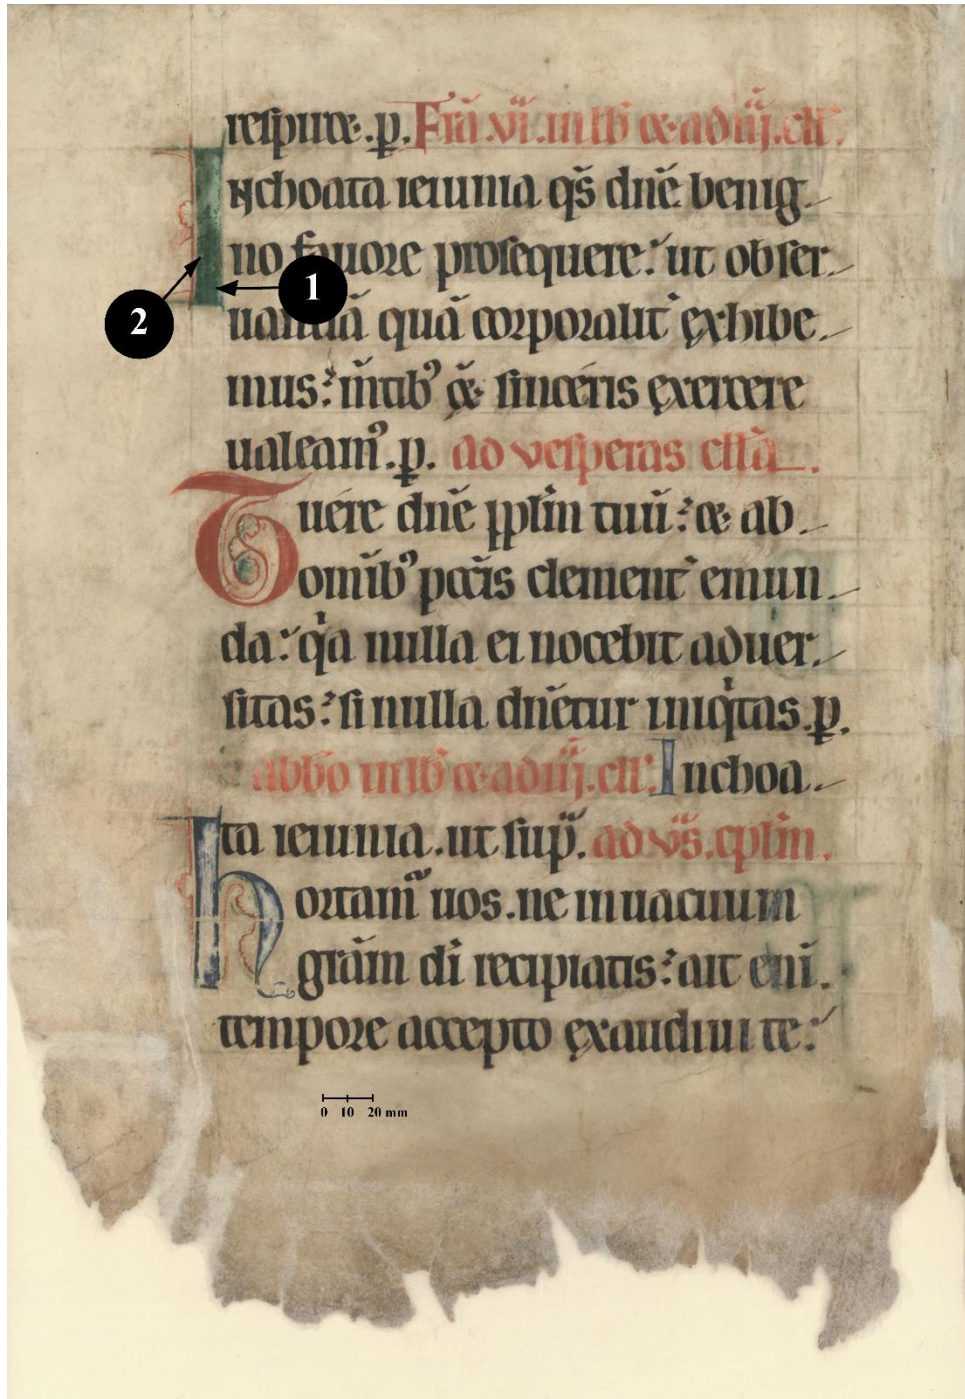 respuitẽ. p. Fr̄a .vi. in lb̄ et ad iij. cll̄'.
Inchoata ieiunia qs̄ dn̄e benig
no fauore prosequere: ut obser
uantiā quā corporalit̄ exhibe
mus: m̄tib' et sinceris exercere
ualeam'. p. ad vesperas cll̄a
Tuere dn̄e pplm̄ tuū: et ab
omīb' pcc̄is clement̄ emun
da: qa nulla ei nocebit aduer
sitas: si nulla dn̄etur iniqtas. p.
abbo in lb̄ et ad iij. cll̄'. Inchoa
ta ieiunia. ut sup̄. ad vs̄. cplm̄.
hortam' uos. ne in uacuum
gr̄am di recipiatis: ait enī.
tempore accepto exaudiui te:
1
2
0 10 20 mm